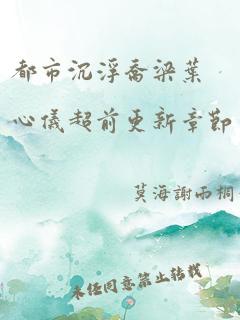 都市沉浮喬梁葉
心儀超前更新章節
莫海謝雨桐
未经同意禁止转载